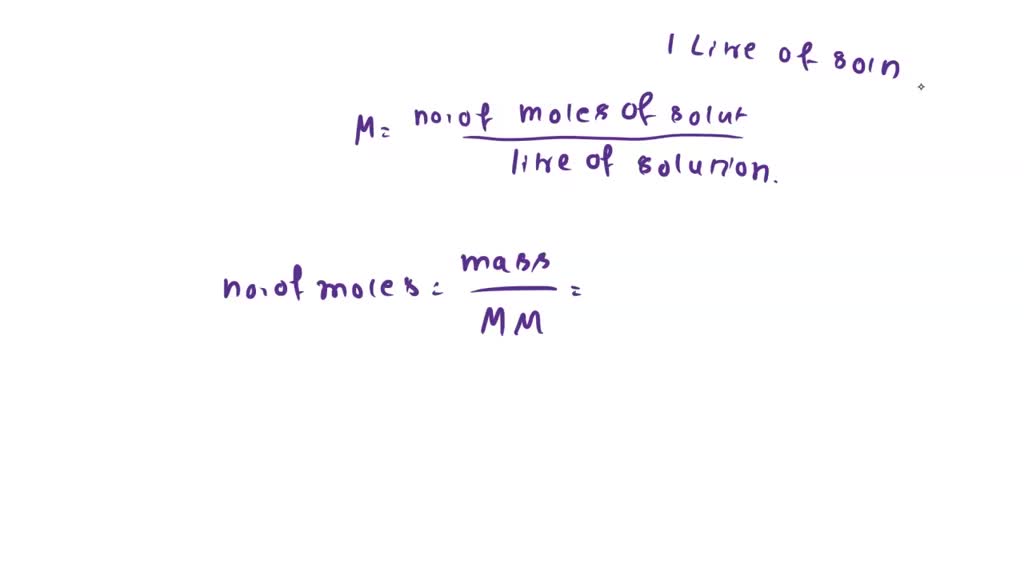 1 Litre of soln
M = no. of moles of solut
litre of solution.
no. of moles = mass =
MM